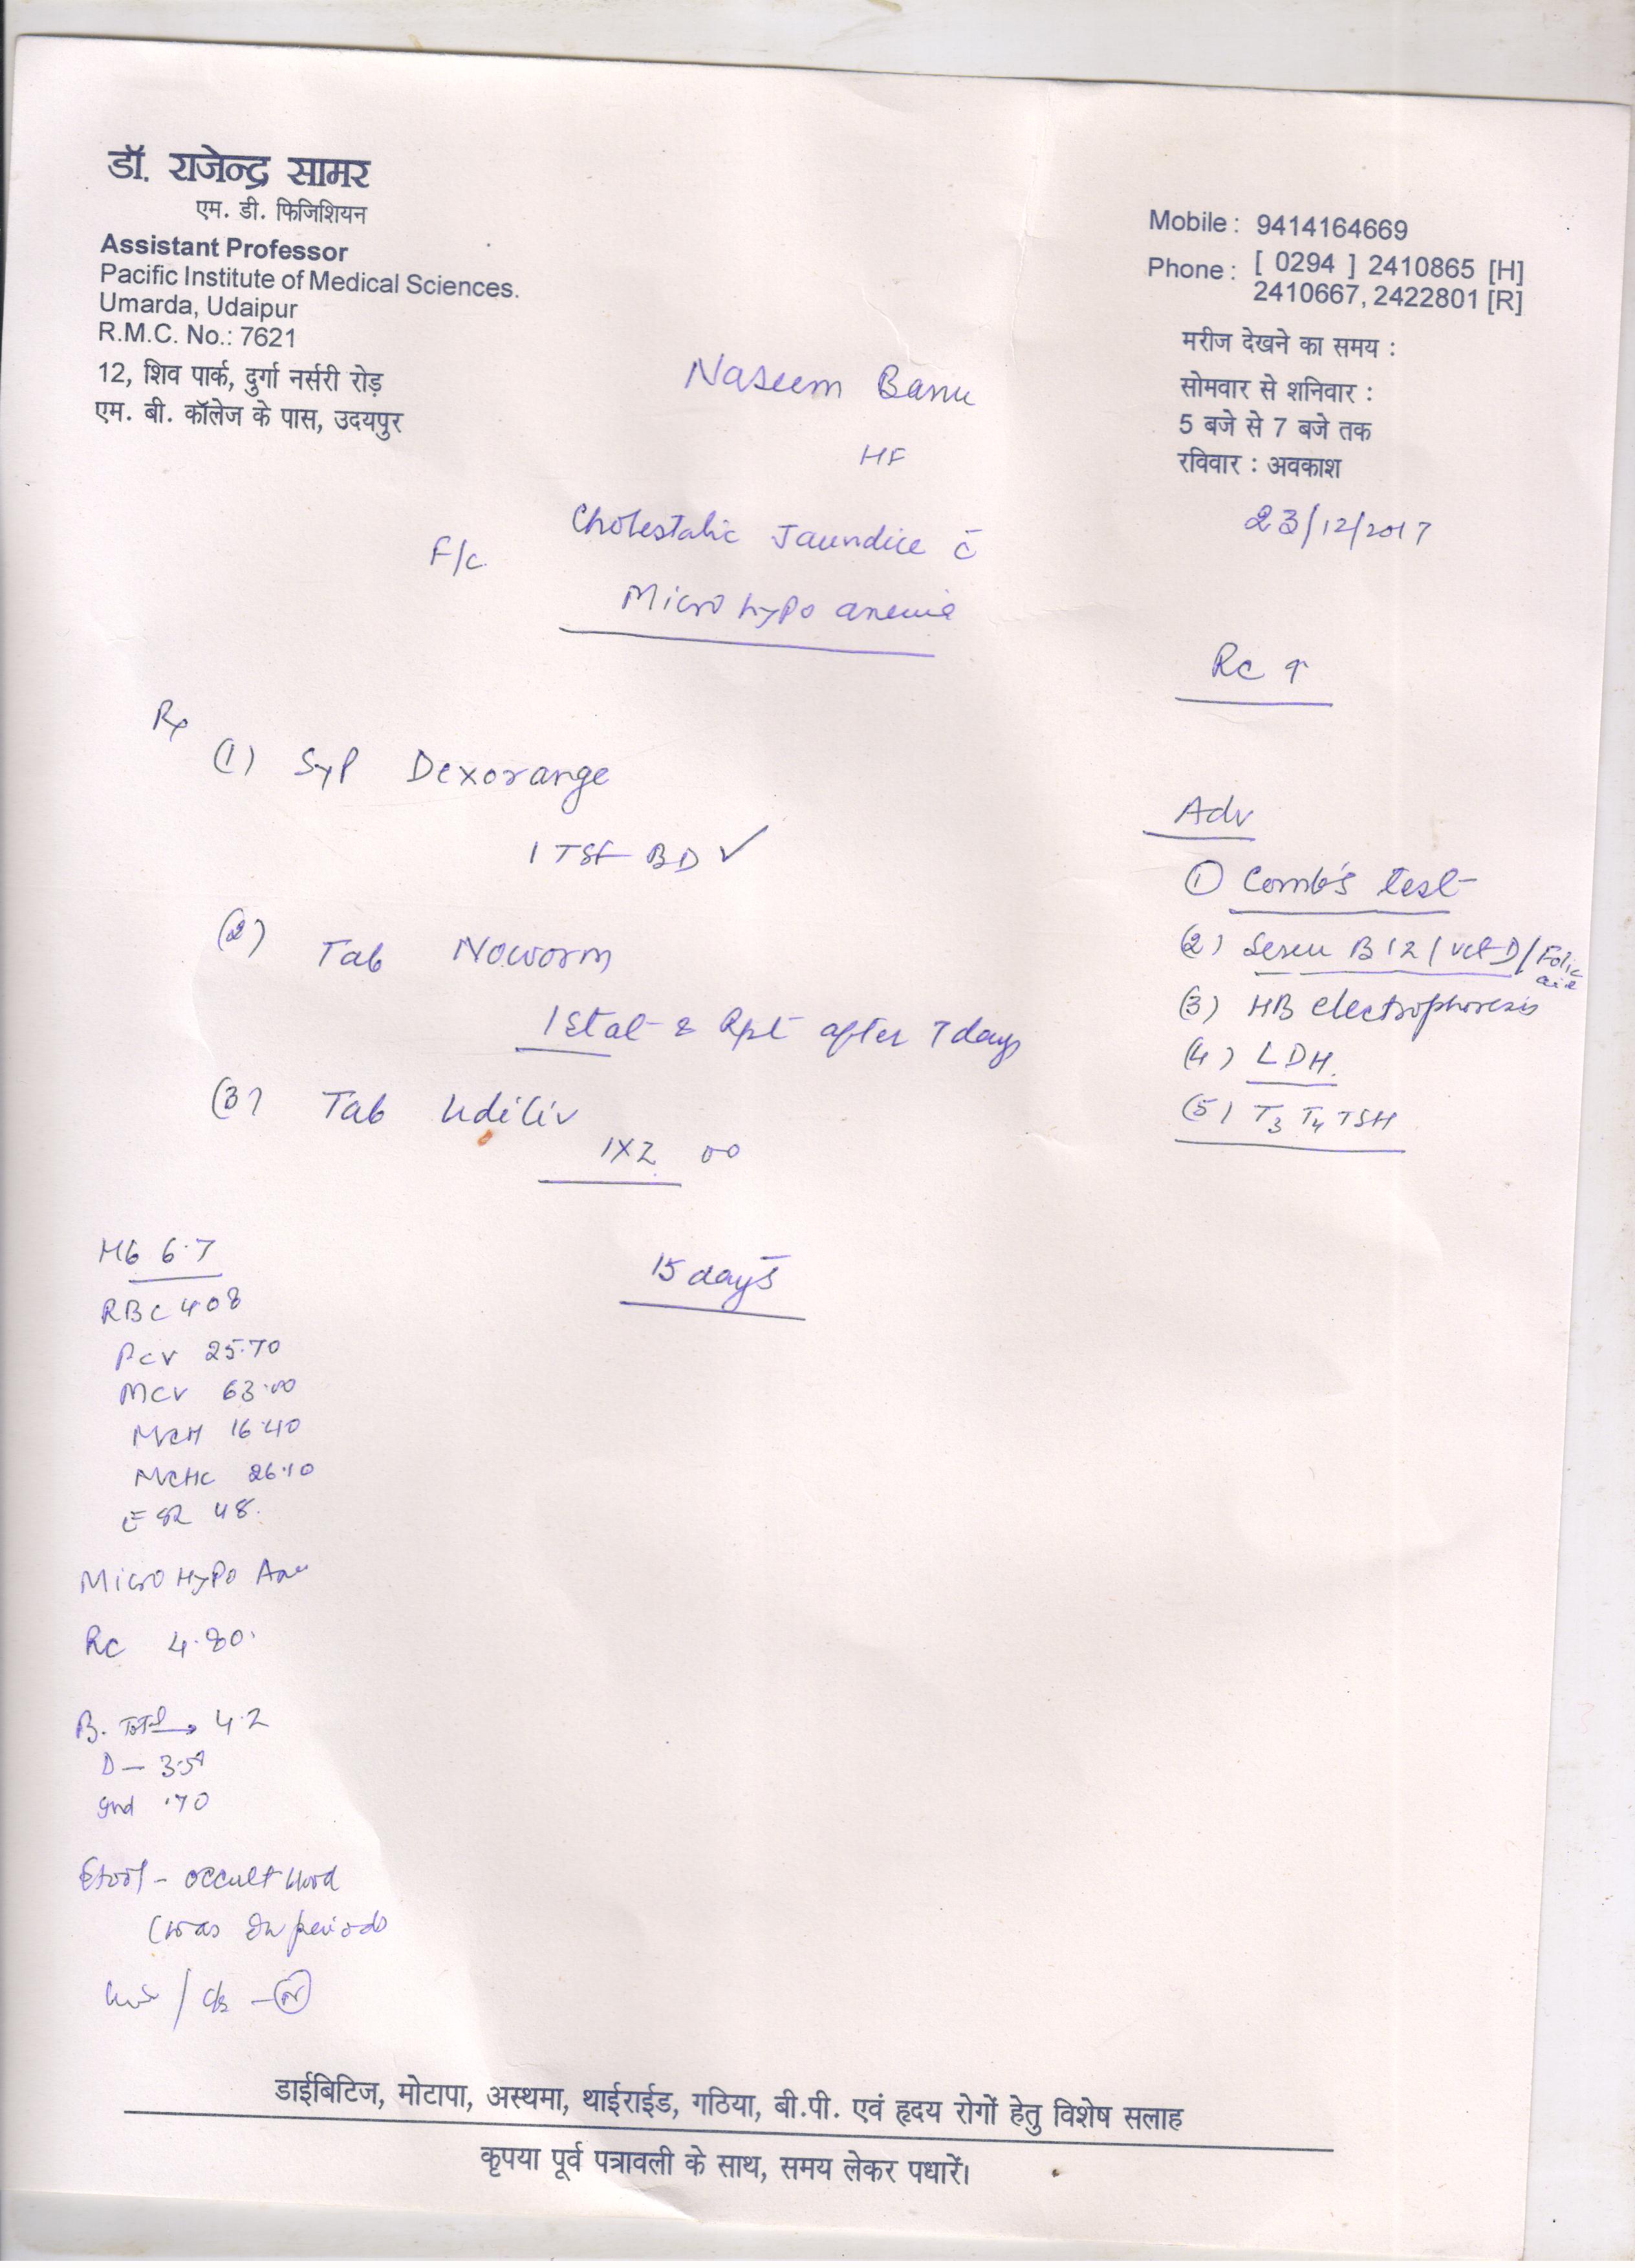 डॉ. राजेन्द्र सामर
एम. डी. फिजिशियन
Assistant Professor
Pacific Institute of Medical Sciences.
Umarda, Udaipur
R.M.C. No.: 7621
12, शिव पार्क, दुर्गा नर्सरी रोड़
एम. बी. कॉलेज के पास, उदयपुर
Mobile : 9414164669
Phone : [ 0294 ] 2410865 [H]
2410667, 2422801 [R]
मरीज देखने का समय :
सोमवार से शनिवार :
5 बजे से 7 बजे तक
रविवार : अवकाश
23/12/2017
Naseem Banu
HF
F/c Cholestatic Jaundice c̄
Micro hypo anemia
Rc ↑
Rx
(1) Syp Dexorange
1 TSF BD ✓
(2) Tab Noworm
1 Stat & Rpt after 7 days
(3) Tab Udiliv
1X2
15 days
Adv
① Comb's test
(2) Serum B12 / Vit D / Folic
(3) HB electrophoresis
(4) LDH.
(5) T3 T4 TSH
Hb 6.7
RBC 408
PCV 25.70
MCV 63.00
MCH 16.40
MCHC 26.10
ESR 48.
Micro Hypo
Rc 4.80.
B. Total → 4.2
D - 3.5
Ind .70
Stool - occult blood
(was on periods
डाईबिटिज, मोटापा, अस्थमा, थाईराईड, गठिया, बी.पी. एवं हृदय रोगों हेतु विशेष सलाह
कृपया पूर्व पत्रावली के साथ, समय लेकर पधारें।